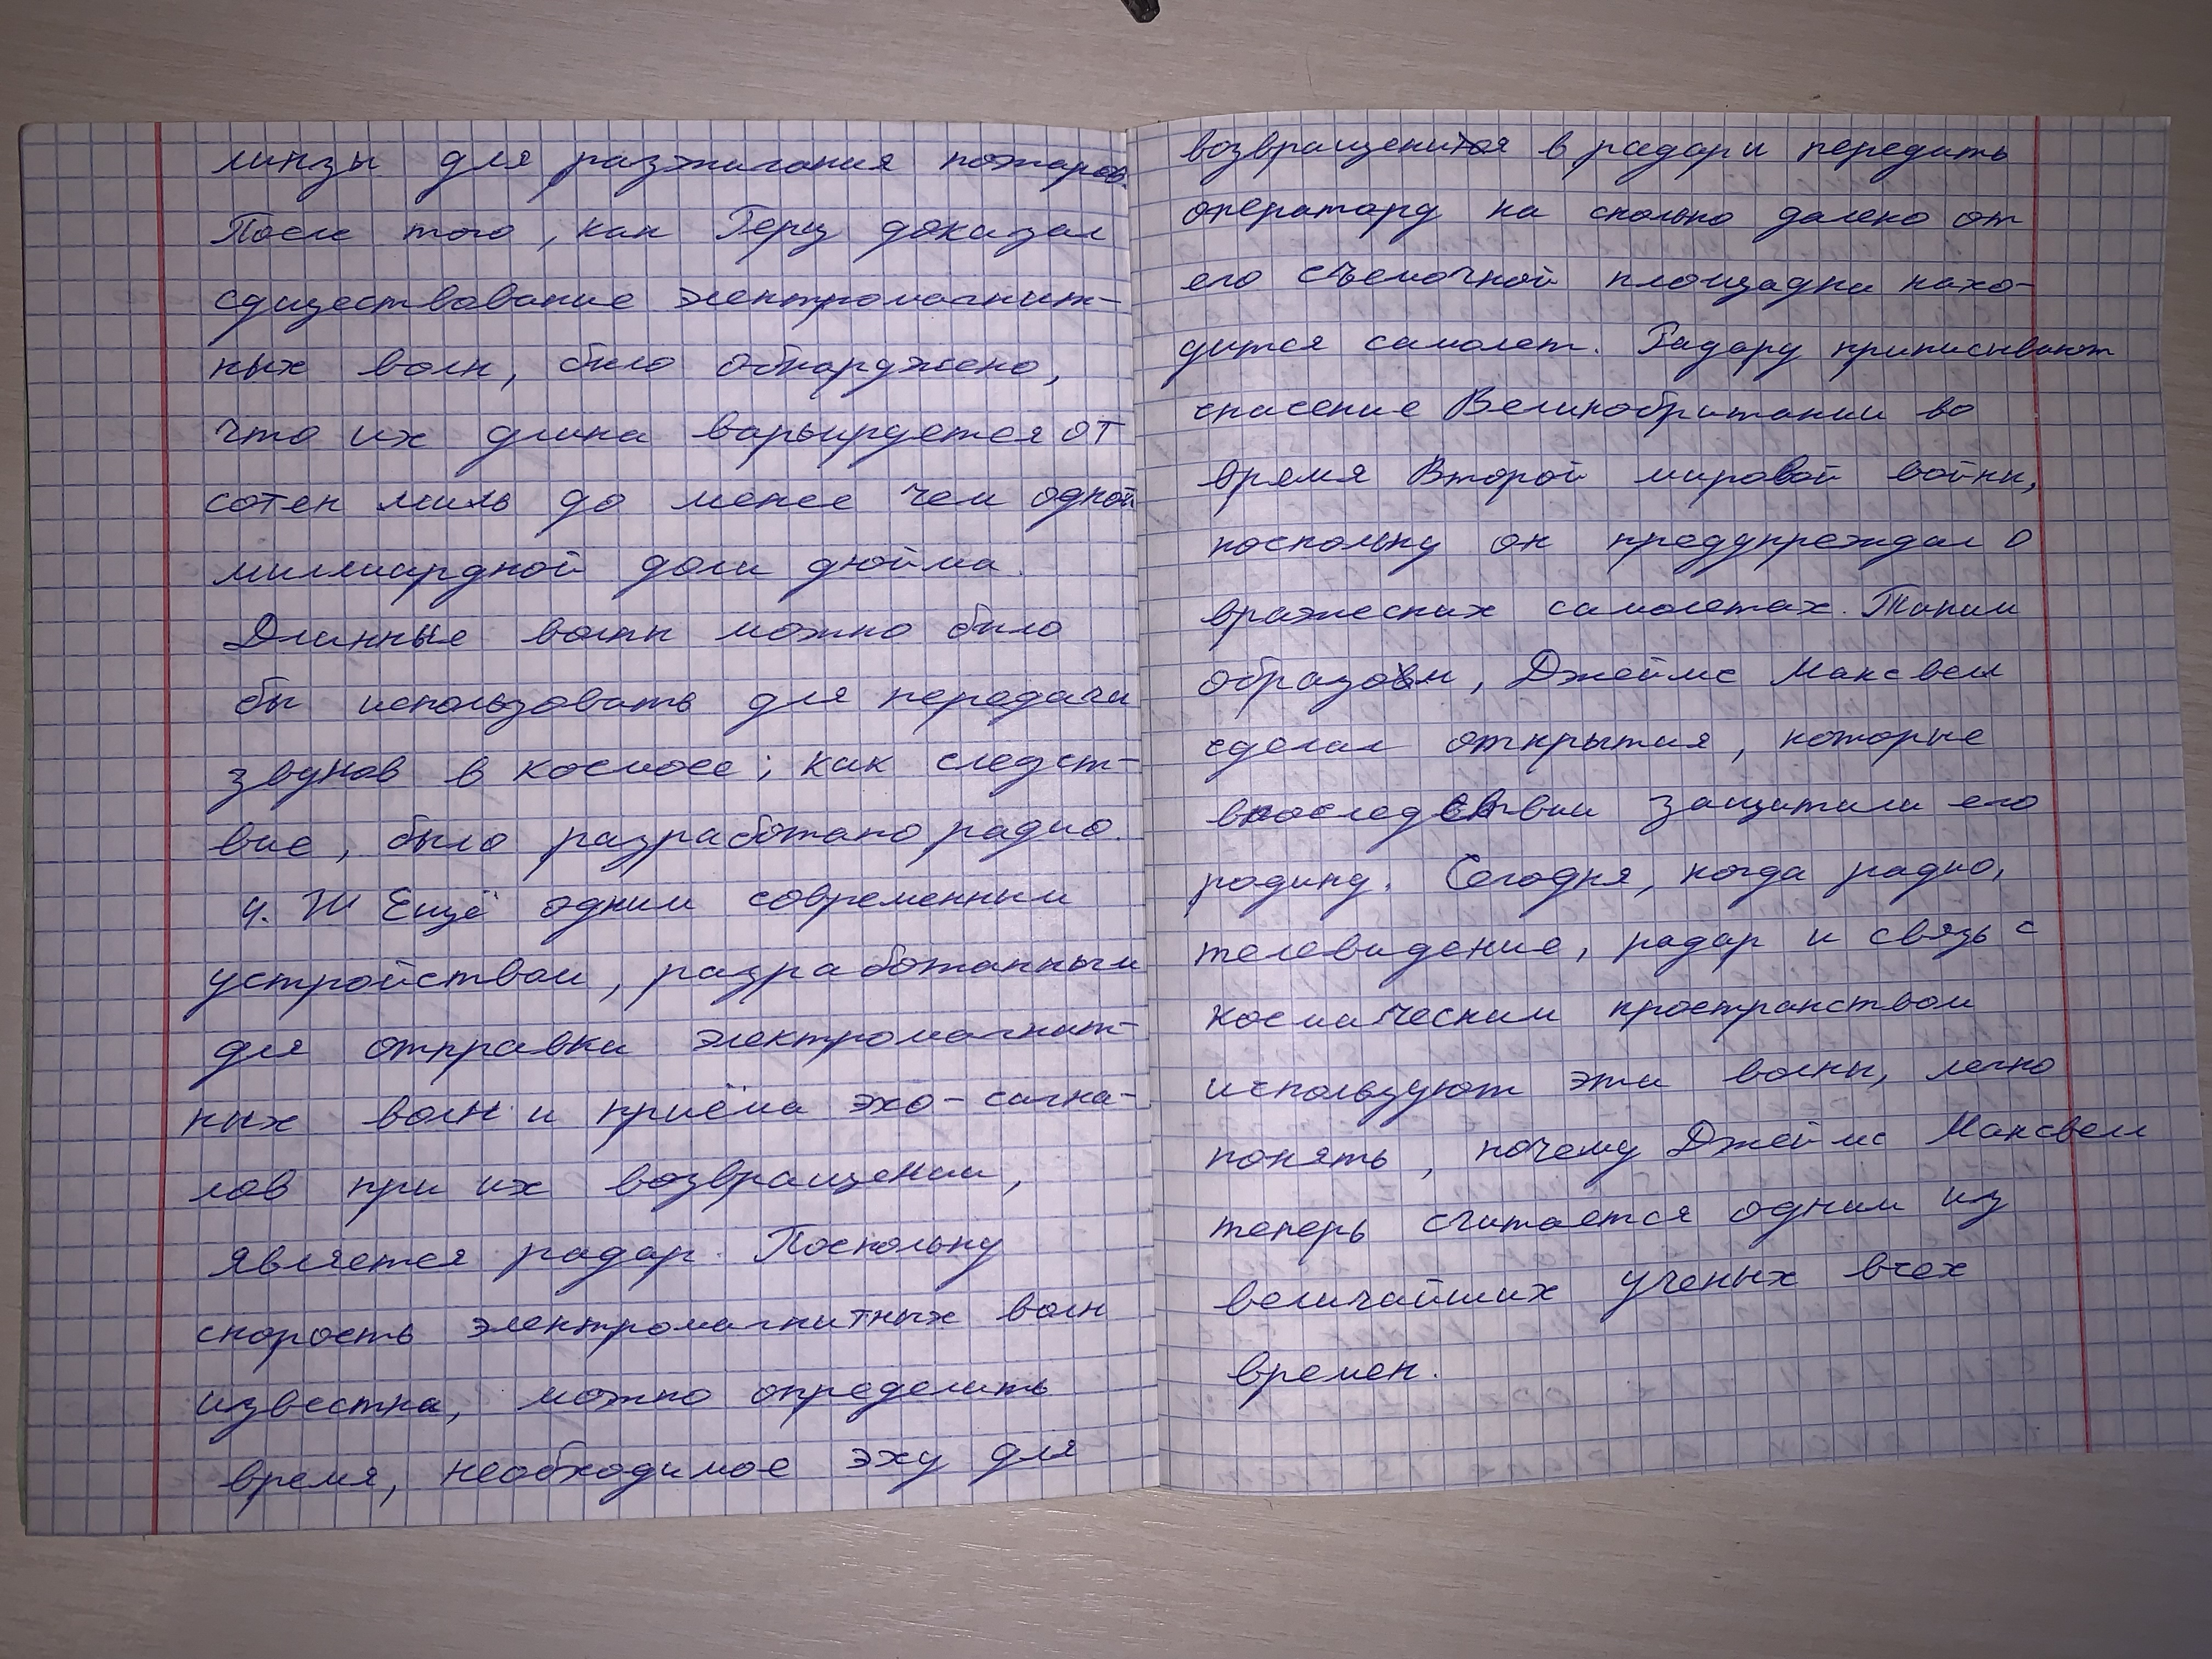 линзы для разжигания пожаров.
После того, как Герц доказал
существование электромагнит-
ных волн, было обнаружено,
что их длина варьируется от
сотен миль до менее чем одной
миллиардной доли дюйма.
Длинные волны можно было
бы использовать для передачи
звуков в космосе; как следст-
вие, было разработано радио.
4. Ещё одним современным
устройством, разработанным
для отправки электромагнит-
ных волн и приёма эхо-сигна-
лов при их возвращении,
является радар. Поскольку
скорость электромагнитных волн
известна, можно определить
время, необходимое эху для
возвращения в радар и передать
оператору на сколько далеко от
его съемочной площадки нахо-
дится самолет. Радару приписывают
спасение Великобритании во
время Второй мировой войны,
поскольку он предупреждал о
вражеских самолетах. Таким
образом, Джеймс Максвелл
сделал открытия, которые
впоследствии защитили его
родину. Сегодня, когда радио,
телевидение, радар и связь с
космическим пространством
используют эти волны, легко
понять, почему Джеймс Максвелл
теперь считается одним из
величайших ученых всех
времен.